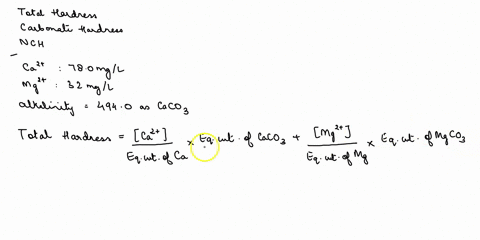 Total Hardness
Carbonate Hardness
NCH
Ca²⁺ : 78.0 mg/L
Mg²⁺ : 32 mg/L
alkalinity = 494.0 as CaCO₃
Total Hardness = [Ca²⁺] / Eq. wt. of Ca × Eq. wt. of CaCO₃ + [Mg²⁺] / Eq. wt. of Mg × Eq. wt. of MgCO₃